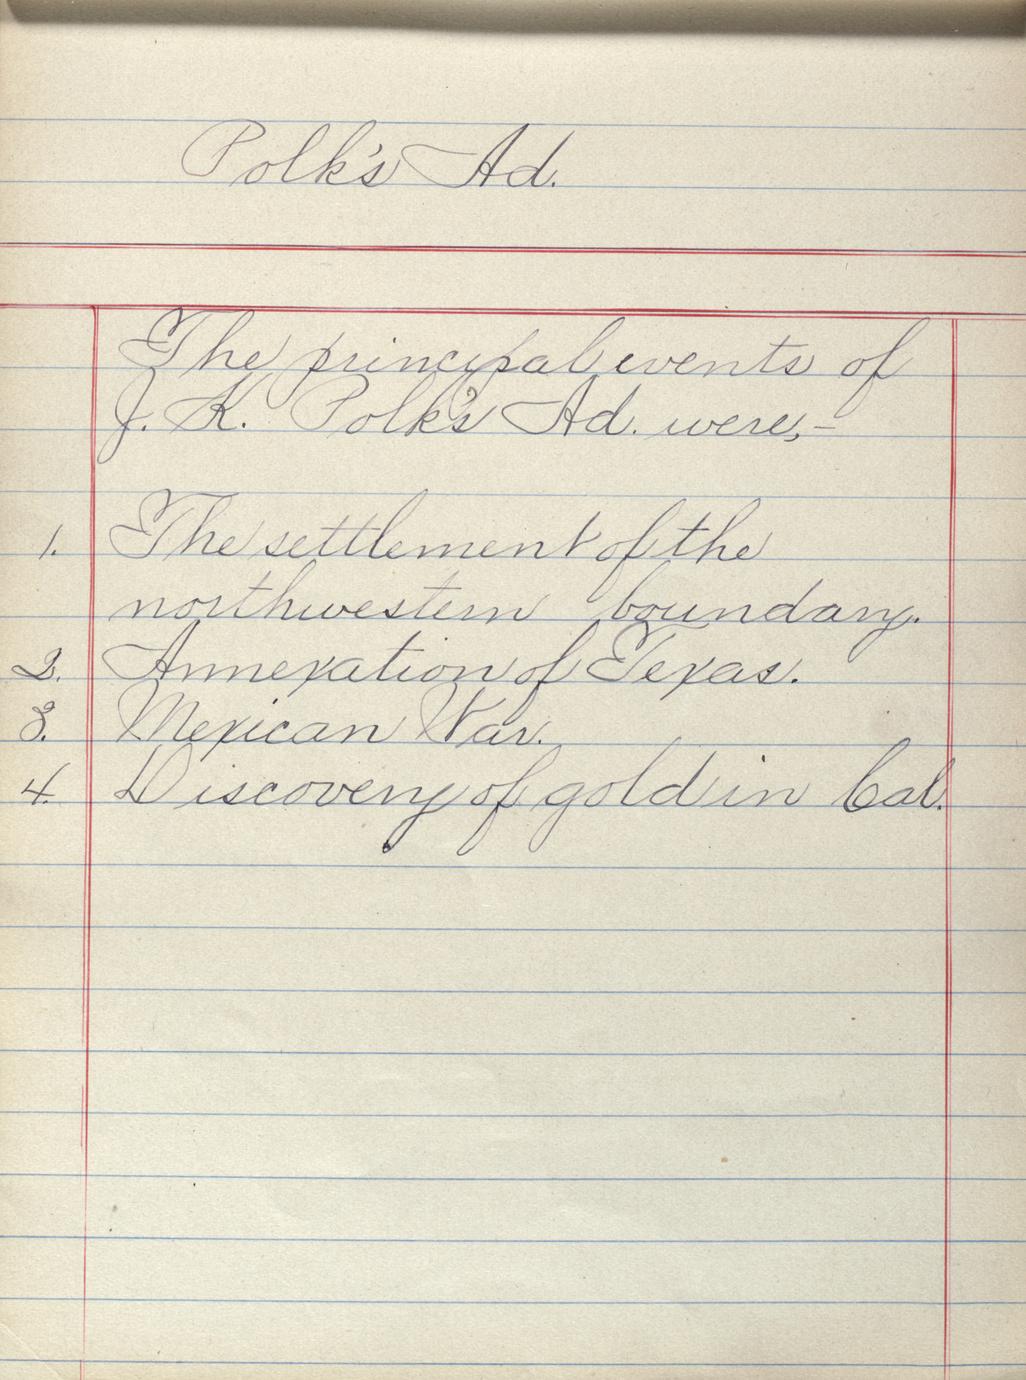 Polk's Ad.
The principal events of
J. K. Polk's Ad. were,-
1. The settlement of the
northwestern boundary.
2. Annexation of Texas.
3. Mexican War.
4. Discovery of gold in Cal.